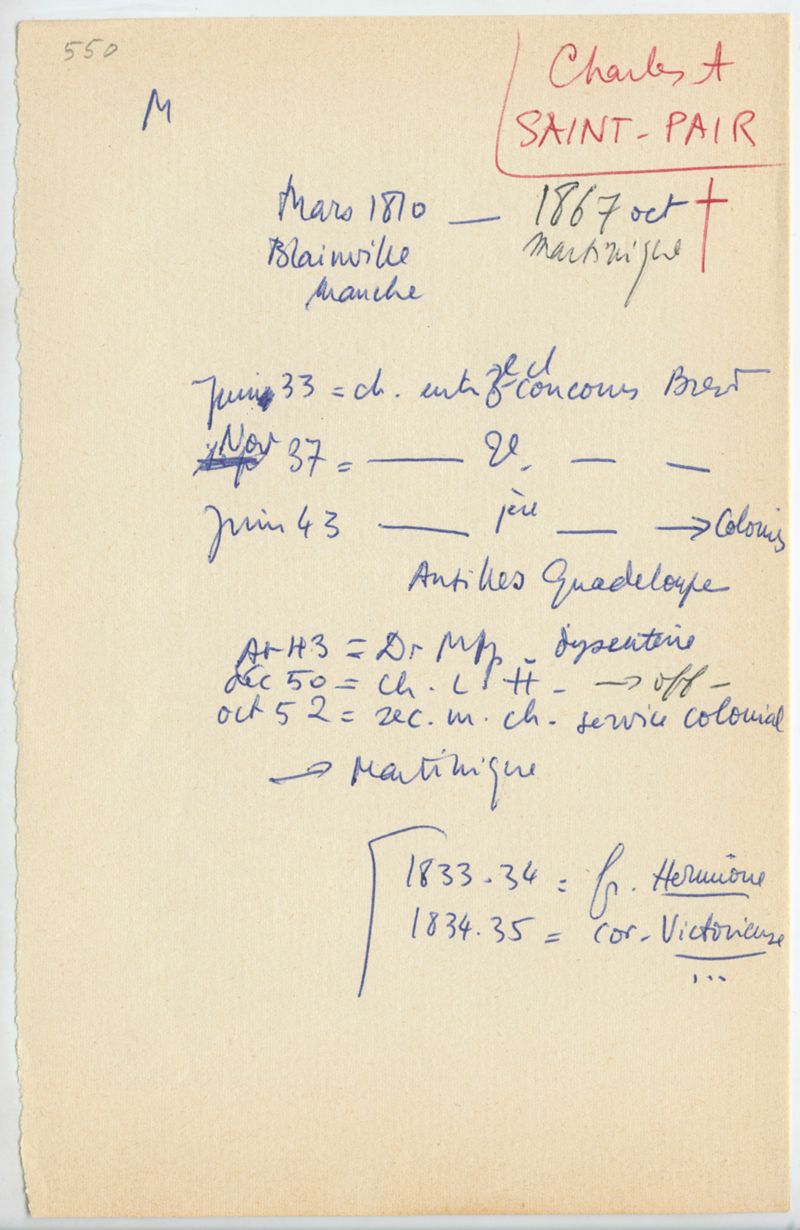 550
M
Charles A
SAINT-PAIR
Mars 1810 — 1867 oct †
Blainville Martinique
Manche
Juin 33 = ch. entr 3e cl concours Brest
Nov 37 = — 2e — —
Juin 43 — 1ère — → Colonies
Antilles Guadeloupe
43 = Dr Mpp - dysenterie
déc 50 = ch. L. H - → off -
oct 52 = sec. m. ch. service colonial
→ Martinique
1833.34 = fr. Hermione
1834.35 = cor. Victorieuse
...